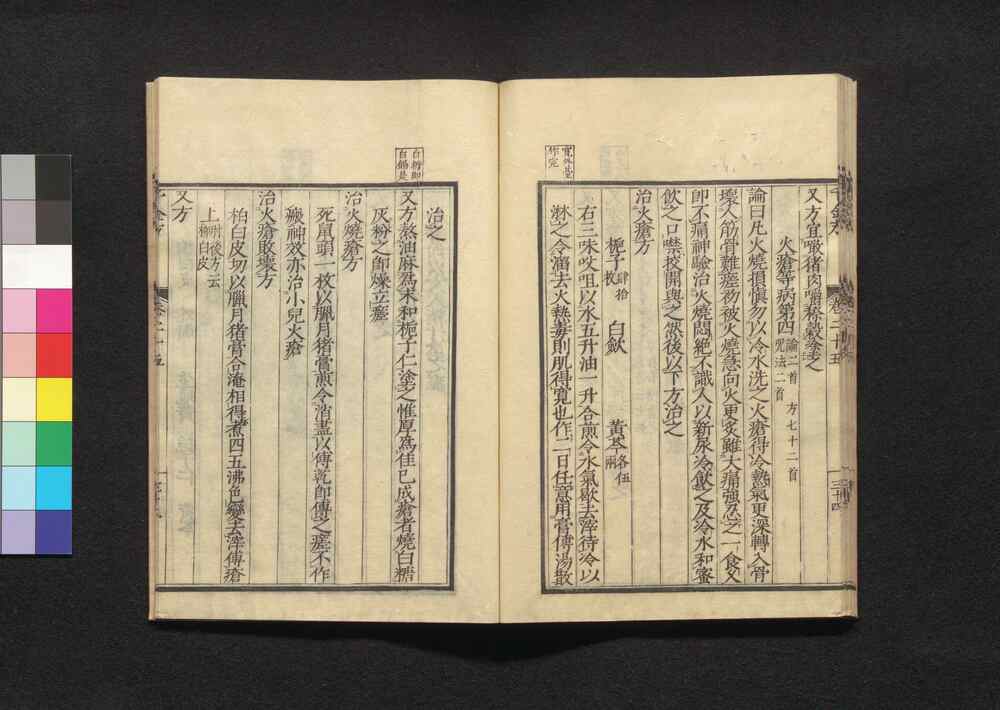 又方宜噉猪肉嚼秫穀塗之
火瘡等病第四 論二首 方七十二首 咒法二首
論曰凡火燒損愼勿以冷水洗之火瘡得冷熱氣更深轉入骨
壞人筋骨難瘥初被火燒急向火更炙雖大痛強忍之一食久
即不痛神驗治火燒悶絕不識人以新尿冷飲之及冷水和蜜
飲之口噤挍開與之然後以下方治之
治火瘡方
梔子肆拾枚 白歛 黃芩各伍兩
右三味㕮咀以水五升油一升合煎令水氣歇去滓待冷以
淋之令溜去火熱毒則肌得寬也作二日任意用膏傅湯散
治之
又方熬油麻爲末和梔子仁塗之惟厚爲佳已成瘡者燒白糖
灰粉之即燥立瘥
治火燒瘡方
死鼠頭一枚以臘月猪膏煎令消盡以傅乾即傅之瘥不作
瘢神效亦治小兒火瘡
治火瘡敗壞方
柏白皮切以臘月猪膏合淹相得煮四五沸色變去滓傅瘡
上肘後方云柳白皮
又方
白糖即白餳是
千金方
卷二十五
三十四